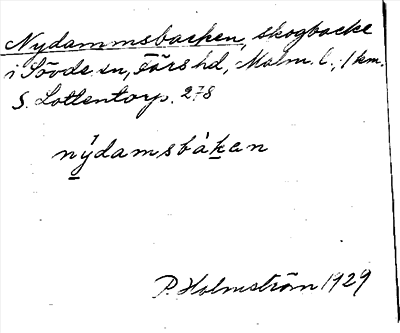 Nydammsbacken, skogbacke
i Sövde sn, Färs hd, Malm. l., 1 km.
S. Lottentorp. 278
nýdamsbàkan
P. Holmström 1929